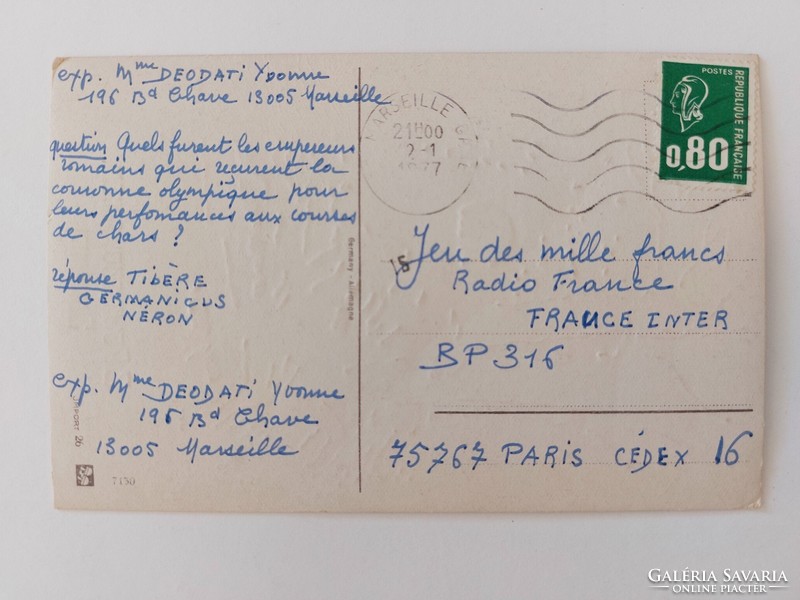 exp. Mme DEODATI Yvonne
196 Bd Chave 13005 Marseille
question Quels furent les empereurs
romains qui reçurent la
couronne olympique pour
leurs perfomances aux courses
de chars ?
réponse TIBÈRE
GERMANICUS
NÉRON
exp. Mme DEODATI Yvonne
196 Bd Chave
13005 Marseille
PORT 26
7130
Germany - Allemagne
MARSEILLE
21H00
2-1
1977
POSTES
RÉPUBLIQUE FRANÇAISE
0,80
Jeu des mille francs
Radio France
FRANCE INTER
BP 316
75767 PARIS CÉDEX 16
GALÉRIA SAVARIA
ONLINE PIACTÉR